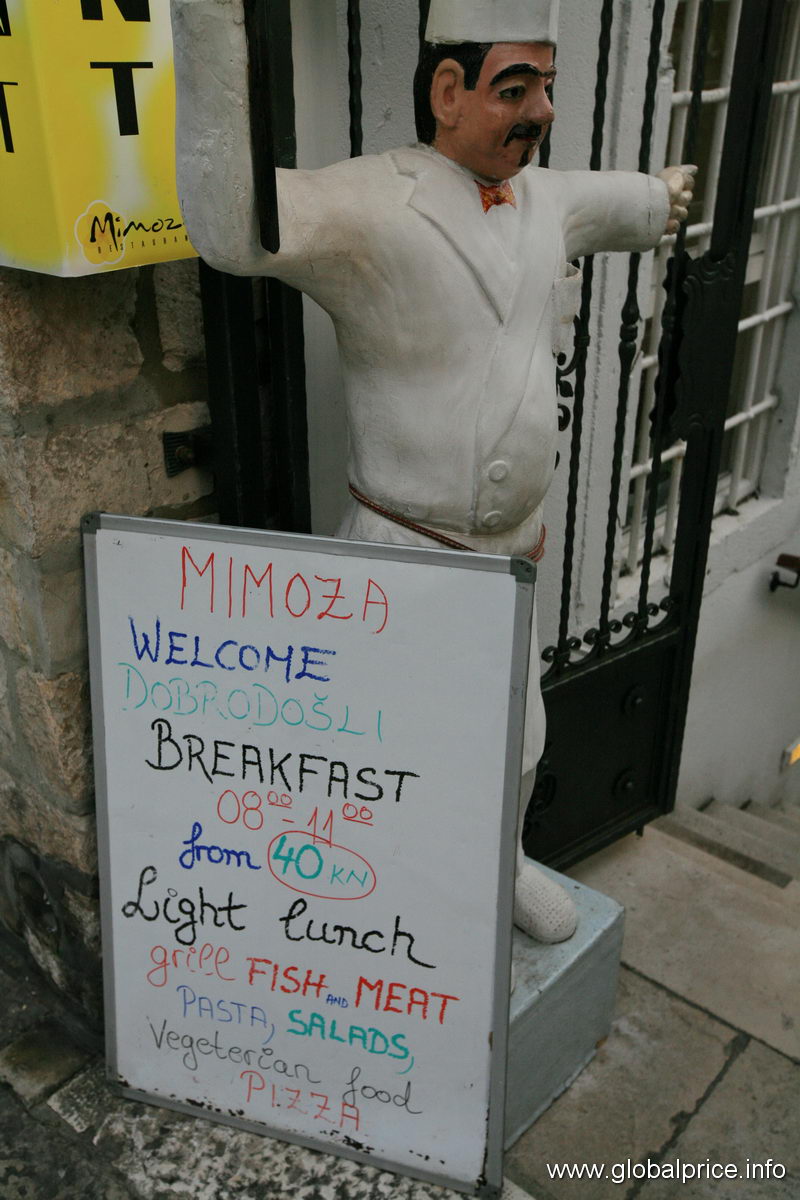 N
T
Mimoz
RESTAURAN
MIMOZA
WELCOME
DOBRODOŠLI
BREAKFAST
08⁰⁰ - 11⁰⁰
from 40 KN
Light lunch
grill FISH AND MEAT
PASTA, SALADS,
Vegeterian food
PIZZA
www.globalprice.info